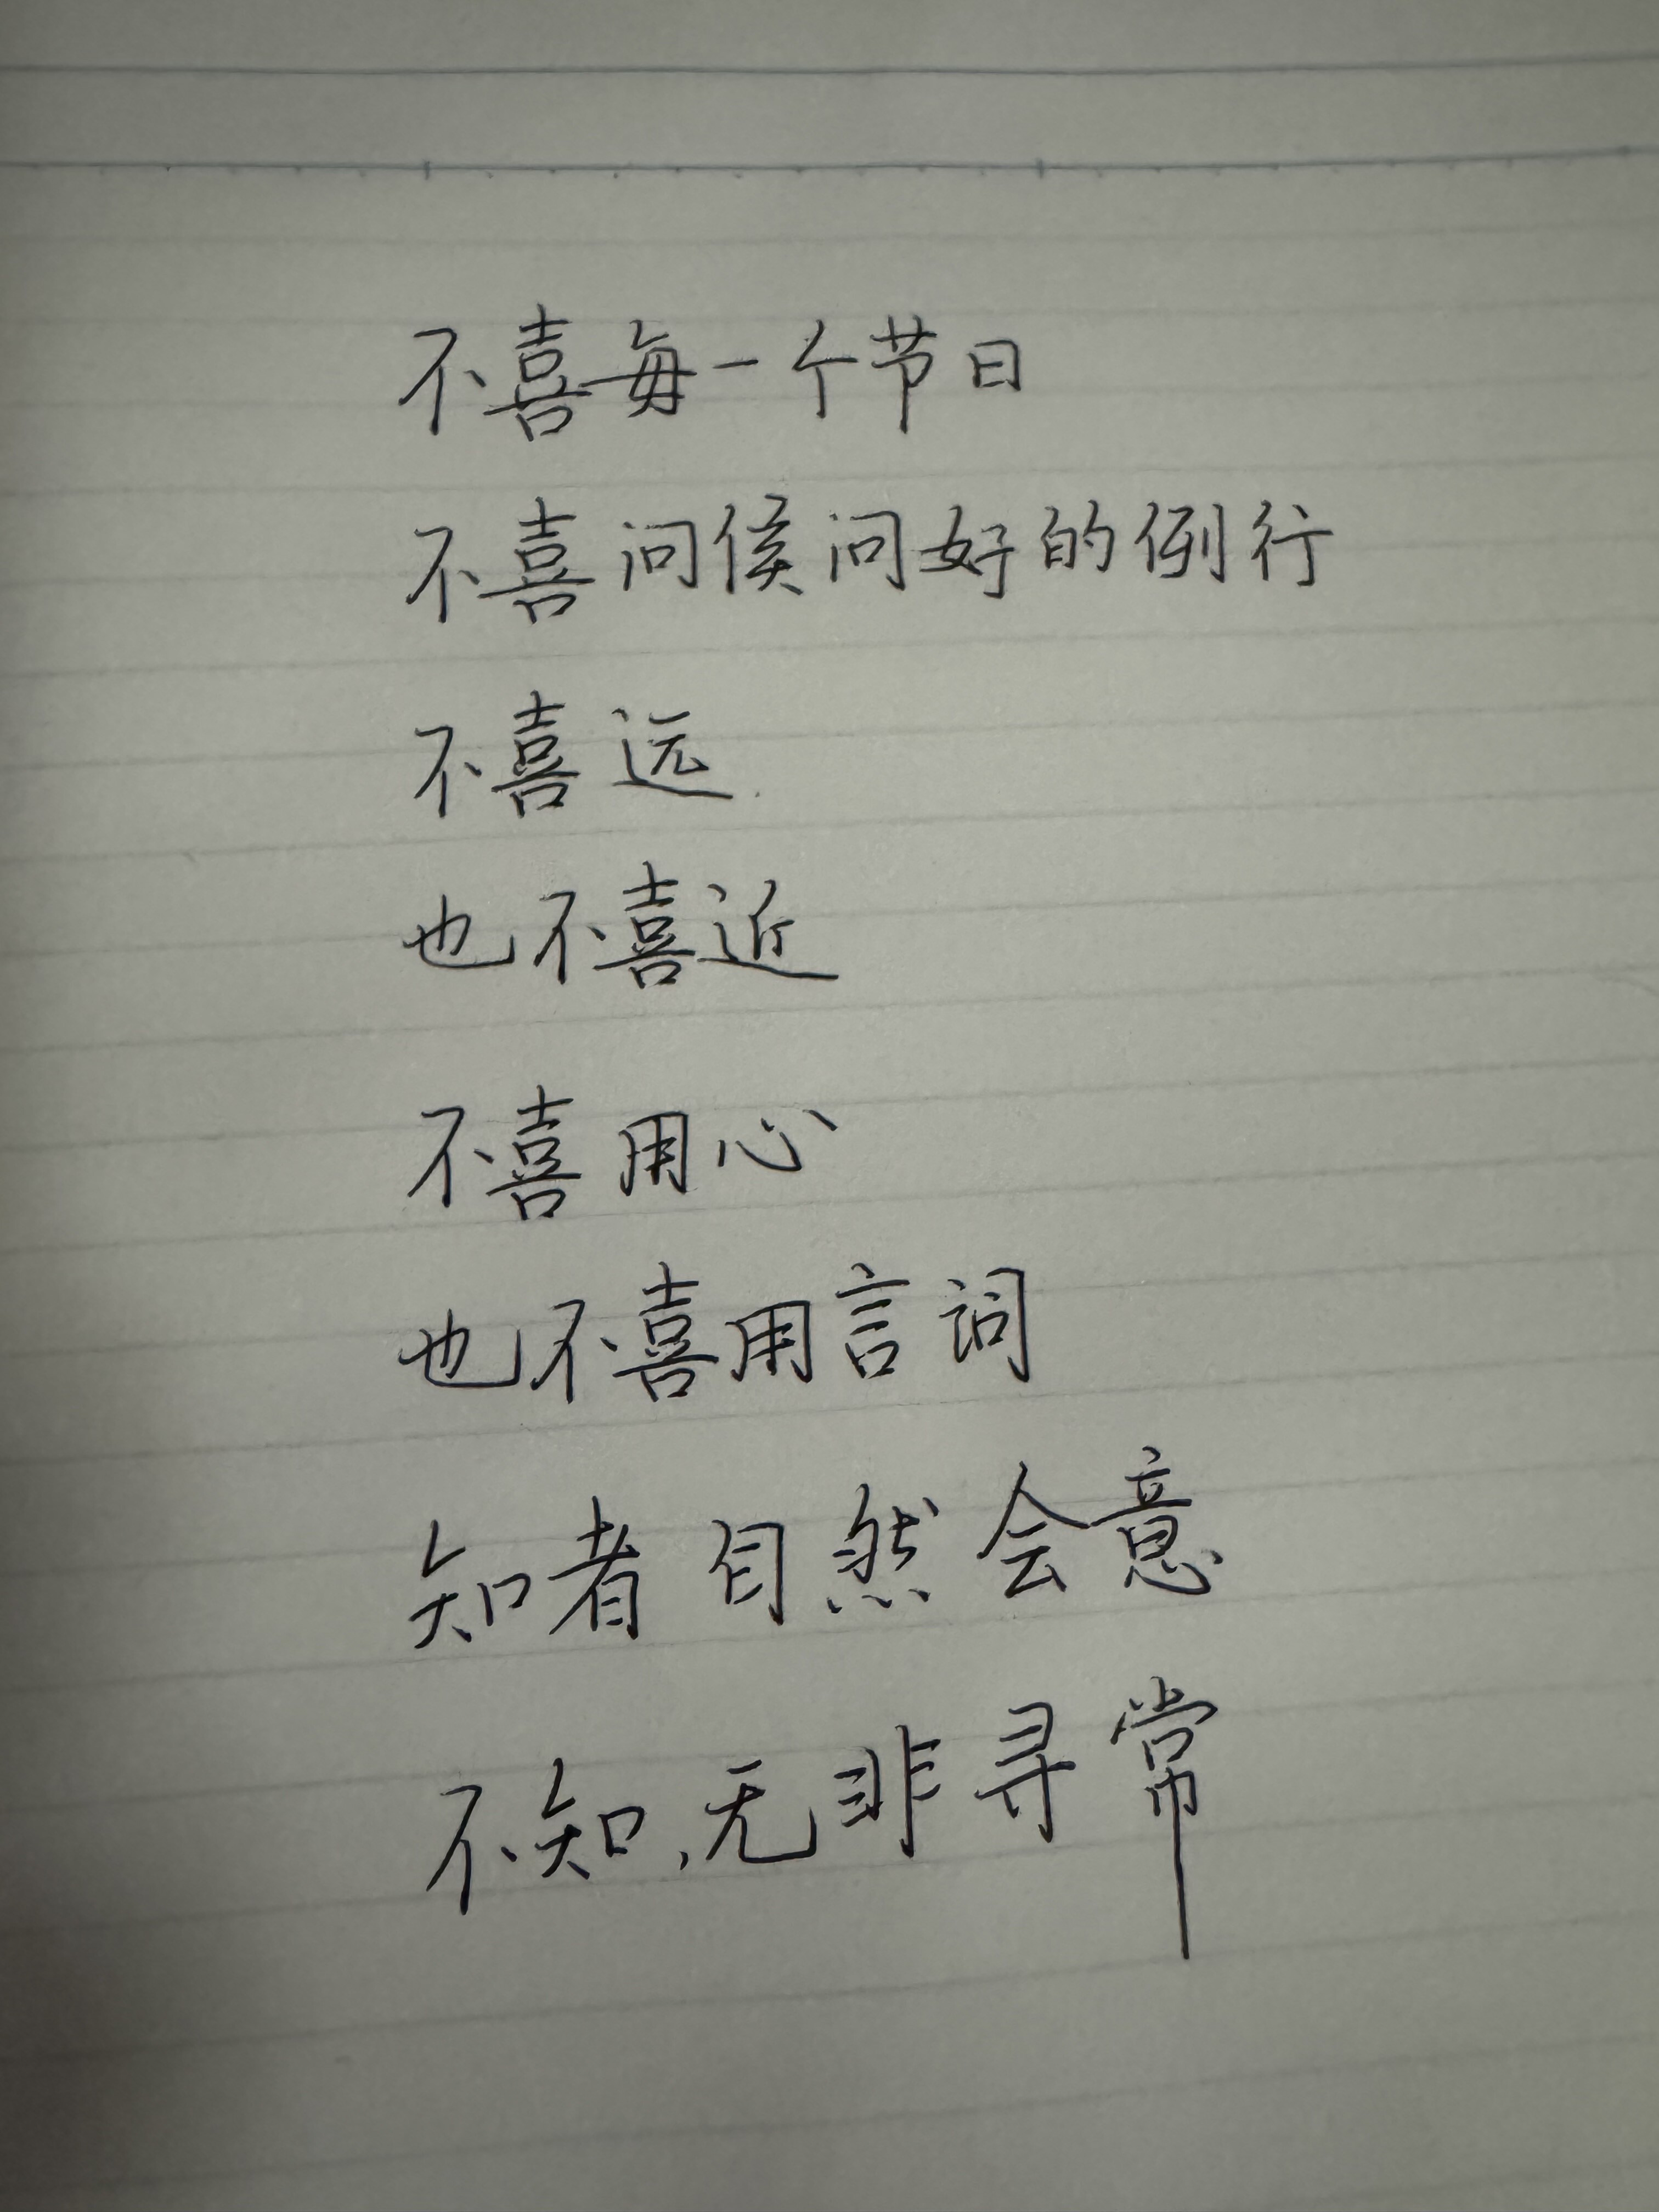 不喜每一个节日
不喜问候问好的例行
不喜远
也不喜近
不喜用心
也不喜用言词
知者自然会意
不知、无非寻常